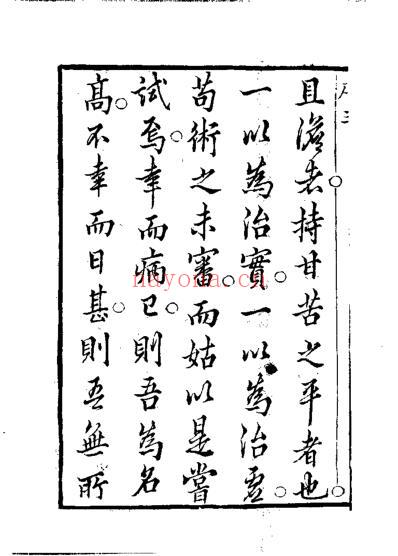 且澹者。持甘苦之平者也。
一以為治實。一以為治虛。
苟術之未審。而姑以是嘗
試焉。幸而病已。則吾為名
高。不幸而日甚。則吾無所
nayona.cn